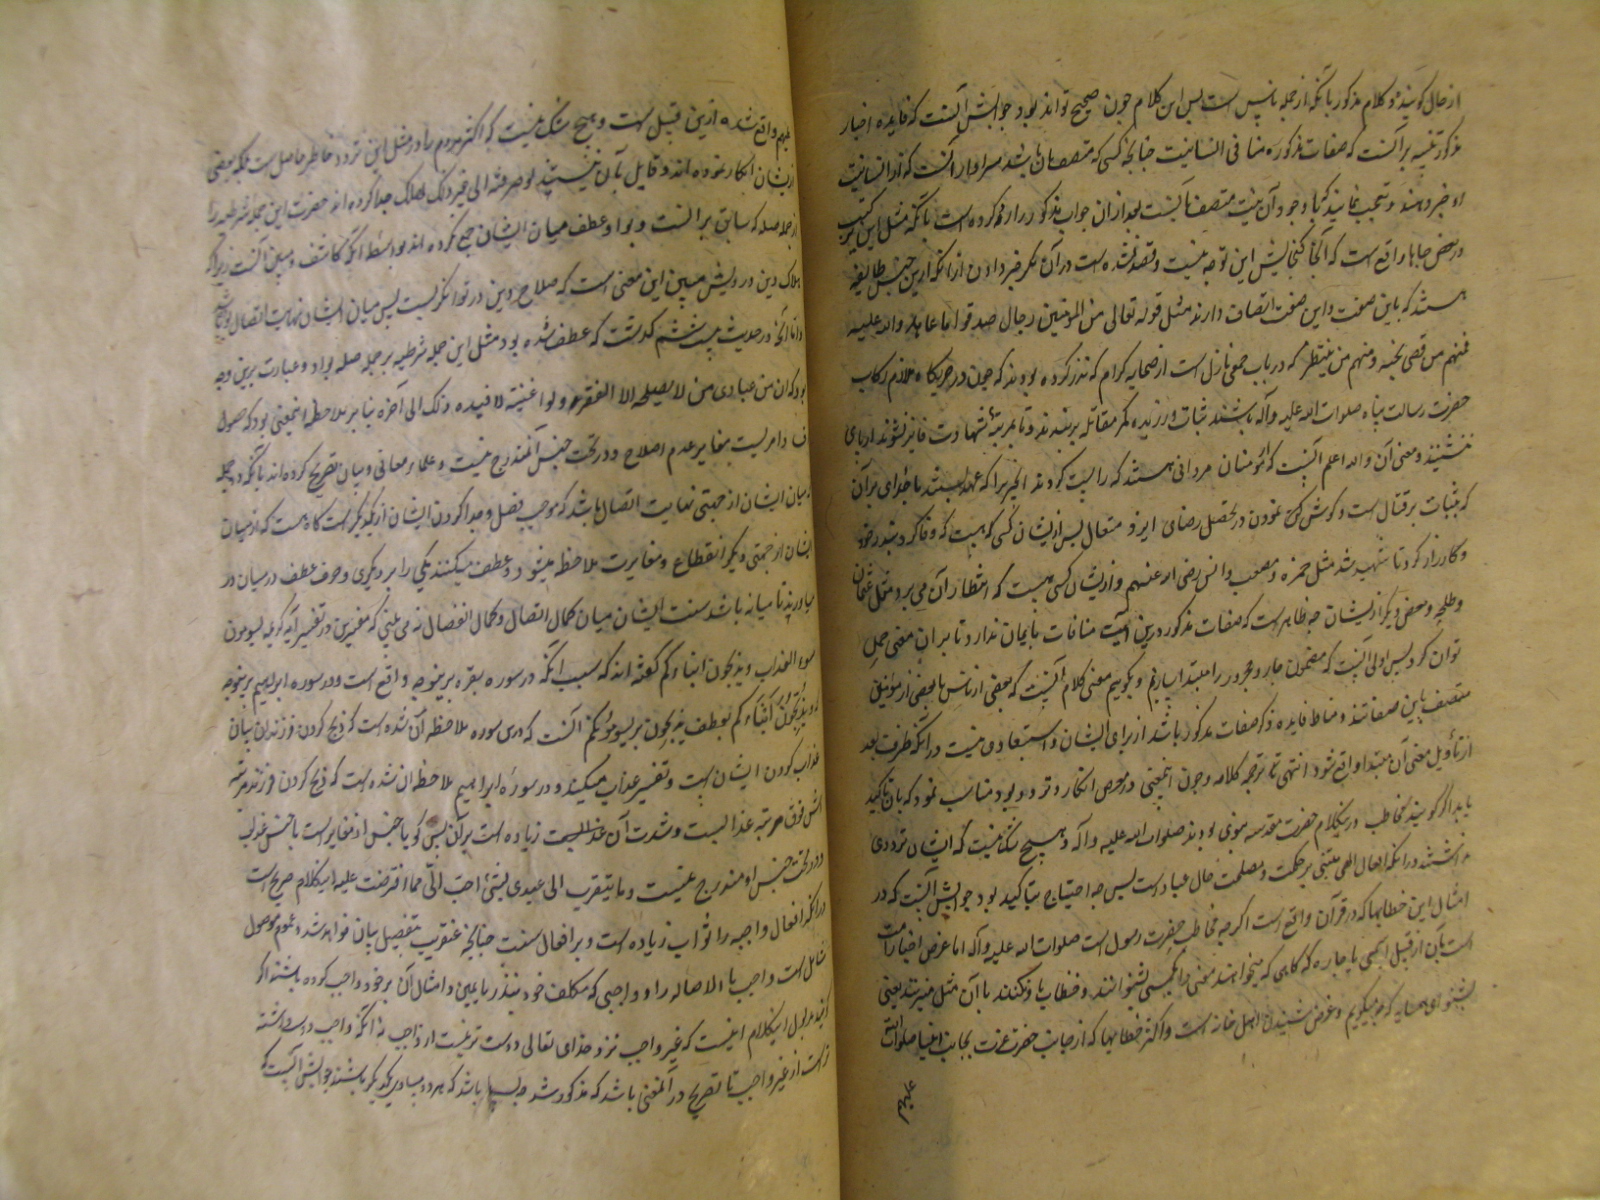 از حال گویند و کلام مذکور بآنکه از جمله ناس است پس این کلام چون صحیح تواند بود جوابش آنست که فایده اخبار
مذکور تنبیه بر آنست که صفات مذکوره منافی انسانیت چنانچه کسی که متصف بآن باشد سزاوار آنست که از انسانیت
او خبر دهند و تعجب نمایند که با وجود آن متصف بآنست بعد ازان جواب مذکور را رد کرده است بآنکه مثل این ترکیب
در بعض جاها واقع است که آنجا گنجایش این توجیه نیست و قصد نشده است در آن مگر خبر دادن از آنکه ازین جنس طایفه
هستند که باین صفت و این صفت اتصاف دارند مثل قوله تعالی من المؤمنین رجال صدقوا ما عاهدوا الله علیه
فمنهم من قضی نحبه و منهم من ینتظر که در باب جمعی نازل است از صحابه کرام که نذر کرده بودند که چون در حربگاه ملازم رکاب
حضرت رسالت پناه صلوات الله علیه و آله باشند ثبات ورزیده کمر مقاتله بربندند و تا بمرتبه شهادت فایز نشوند از پای
ننشینند و معنی آن والله اعلم آنست که از مؤمنان مردانی هستند که راست کردند آنچیز را که عهد بستند با خدای بر آن
که ثبات بر قتال است و کوشش نمودن در تحصیل رضای ایزد متعال پس ازیشان کسی هست که وفا کرد بنذر خود
و کارزار کرد تا شهید شد مثل حمزه و مصعب و انس رضی الله عنهم و ازیشان کسی هست که انتظار آن می برد مثل عثمان
و طلحه و بعض دیگر ازیشان چه ظاهر است که صفات مذکور درین آیت منافات بایمان ندارد تا بر آن معنی حمل
توان کرد پس اولی آنست که مضمون جار و مجرور را مبتدا سازیم و بگوییم معنی کلام آنست که بعضی از ناس یا بعضی از مؤمنین
متصف باین صفاتند و مناط فایده ذکر صفات مذکور باشد از برای ایشان و استبعادی نیست در آنکه ظرف بعد
از تأویل بمعنی آن مبتدا واقع شود انتهی ترجمة کلامه و چون اینمعنی در معرض انکار و تردد بود مناسب نمود که بان تاکید
یابد اگر گویند مخاطب درینکلام حضرت مقدسه نبوی بودند صلوات الله علیه و آله و هیچ شک نیست که ایشان ترددی
نداشتند در آنکه افعال الهی مبتنی بر حکمت و مصلحت حال عباد است پس چه احتیاج بتاکید بود جوابش آنست که در
امثال این خطابها که در قرآن واقع است اگرچه مخاطب حضرت رسول است صلوات الله علیه و آله اما غرض اخبار امت
است بآن از قبیل ایاک اعنی یا جاره که گاهی که میخواهند معنی را بکسی بشنوانند و خطاب باو نکنند با آن مثل میزنند یعنی
بشنو ای همسایه که با تو میگویم و غرض شنیدن اهل خانه است و اکثر خطابها که از جانب حضرت عزت بجانب انبیا صلوات
علیهم
علیهم واقع شده ازین قبیل است و هیچ شک نیست که اکثر مردم را در مثل این تردد خاطر حاصل است بلکه بعضی
ازیشان انکار نموده اند و قایل بآن نیستند لو صرفته الی غیر ذلک لهلک جدا کرده اند حضرت این جمله شرطیه را
از جمله صله که سابق بر آنست و بواو عطف میان ایشان جمع نکرده اند بواسطه آنکه کاشف و مبین آنست زیرا که
هلاک دین درویش مبین این معنی است که صلاح دین در توانگریست پس میان ایشان نهایت اتصال باشد
و اما آنچه در حدیث بیست و ششم گذشت که عطف شده بود مثل این جمله شرطیه بر جمله صله بواو و عبارت برین وجه
بود که ان من عبادی من لا یصلحه الا الفقر و لو اغنیته لافسده ذلک الی آخره بنا بر ملاحظه اینمعنی بود که حصول
فساد امریست مغایر عدم اصلاح و در تحت جنس آن مندرج نیست و علماء معانی و بیان تصریح کرده اند بآنکه دو جمله
که میان ایشان از جهتی نهایت اتصال باشد که موجب فصل و جدا کردن ایشان از یکدیگر است گاه هست که از میان
ایشان از جهتی دیگر انقطاع و مغایرت ملاحظه میشود و عطف میکنند یکی را بر دیگری و حرف عطف در میان در
میاورند تا میانه باشد نسبت ایشان میان کمال اتصال و کمال انفصال نمی بینی که مفسرین در تفسیر آیه کریمه یسومون
سوء العذاب و یذبحون ابناءکم گفته اند که سبب آنکه در سوره بقره برینوجه واقع است و در سوره ابراهیم برینوجه
که و یذبحون ابناءکم بعطف یذبحون بر یسومونکم آنست که درین سوره ملاحظه آن شده است که ذبح کردن فرزندان بیان
عذاب کردن ایشان است و تفسیر عذاب میکند و در سوره ابراهیم ملاحظه آن شده است که ذبح کردن فرزند مرتبه
اش فوق مرتبه عذابست و شدت آن عذابیست زیاده است بر آن پس گویا جنس او مغایر است با جنس عذاب
و در تحت جنس او مندرج نیست و ما یتقرب الی عبدی بشیء احب الی مما افترضت علیه اینکلام صریح است
در آنکه افعال واجبه را ثواب زیاده است بر افعال سنت چنانچه عنقریب بتفصیل بیان خواهد شد و عموم موصول
شامل است واجب بالاصاله را و واجبی که مکلف خود بنذر یا یمین و امثال آن بر خود واجب کرده باشد اگر
گویند مدلول اینکلام اینست که غیر واجب نزد خدای تعالی دوست تر نیست از واجب نه آنکه واجب دوست داشته
تر است از غیر واجب تا تصریح در آنمعنی باشد که مذکور شد چه بسا باشد که هر دو مساوی یکدیگر باشند جوابش آنست که